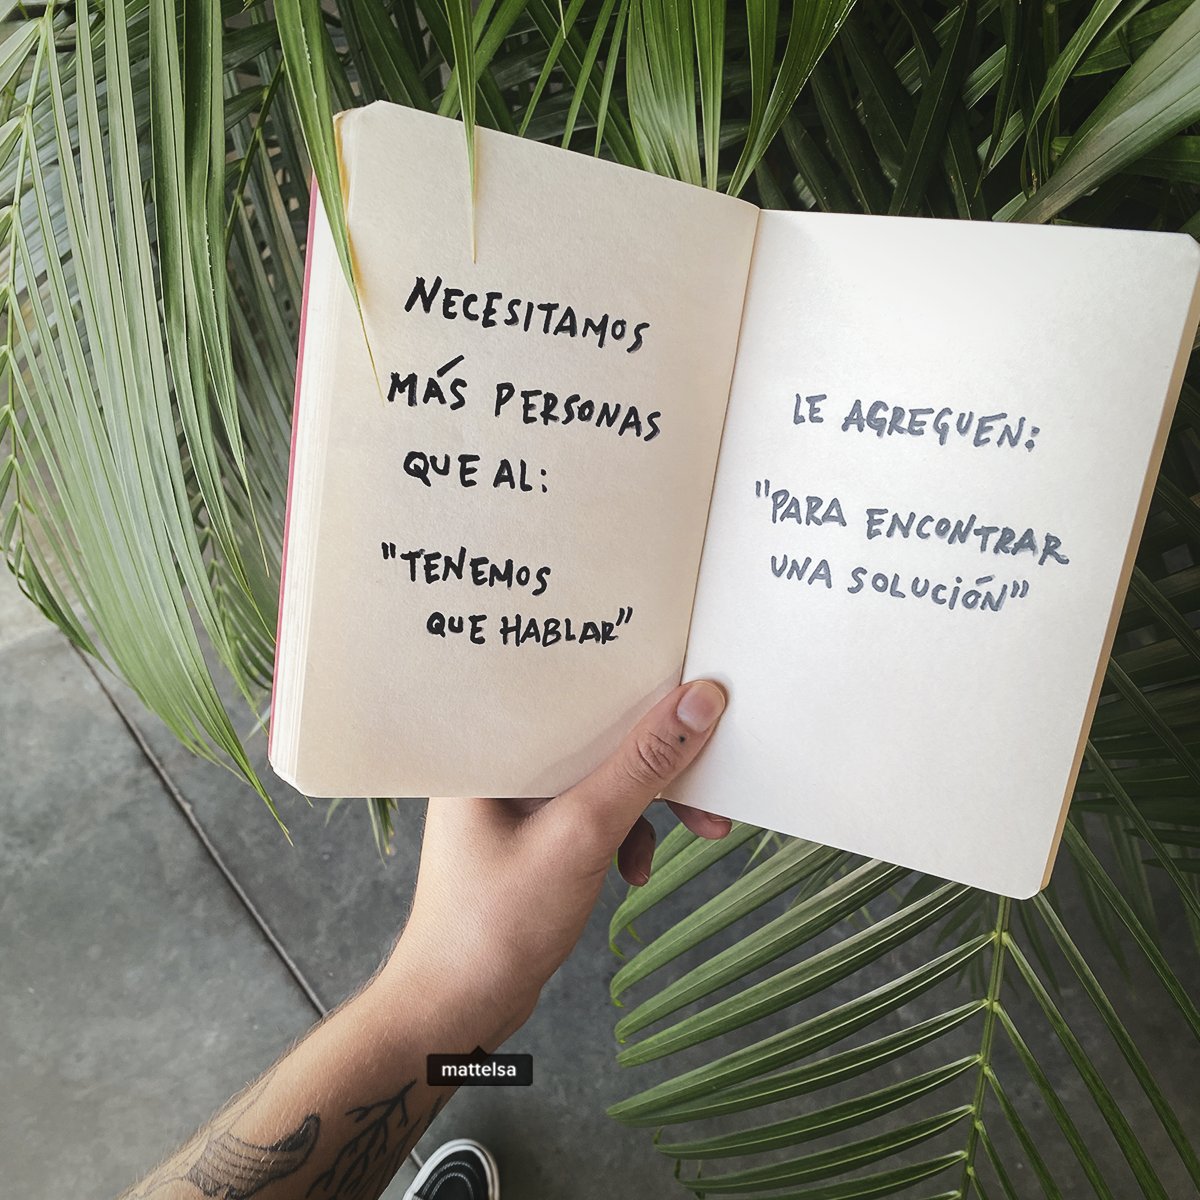 NECESITAMOS
MÁS PERSONAS
QUE AL:
"TENEMOS
QUE HABLAR"
LE AGREGUEN:
"PARA ENCONTRAR
UNA SOLUCIÓN"
mattelsa